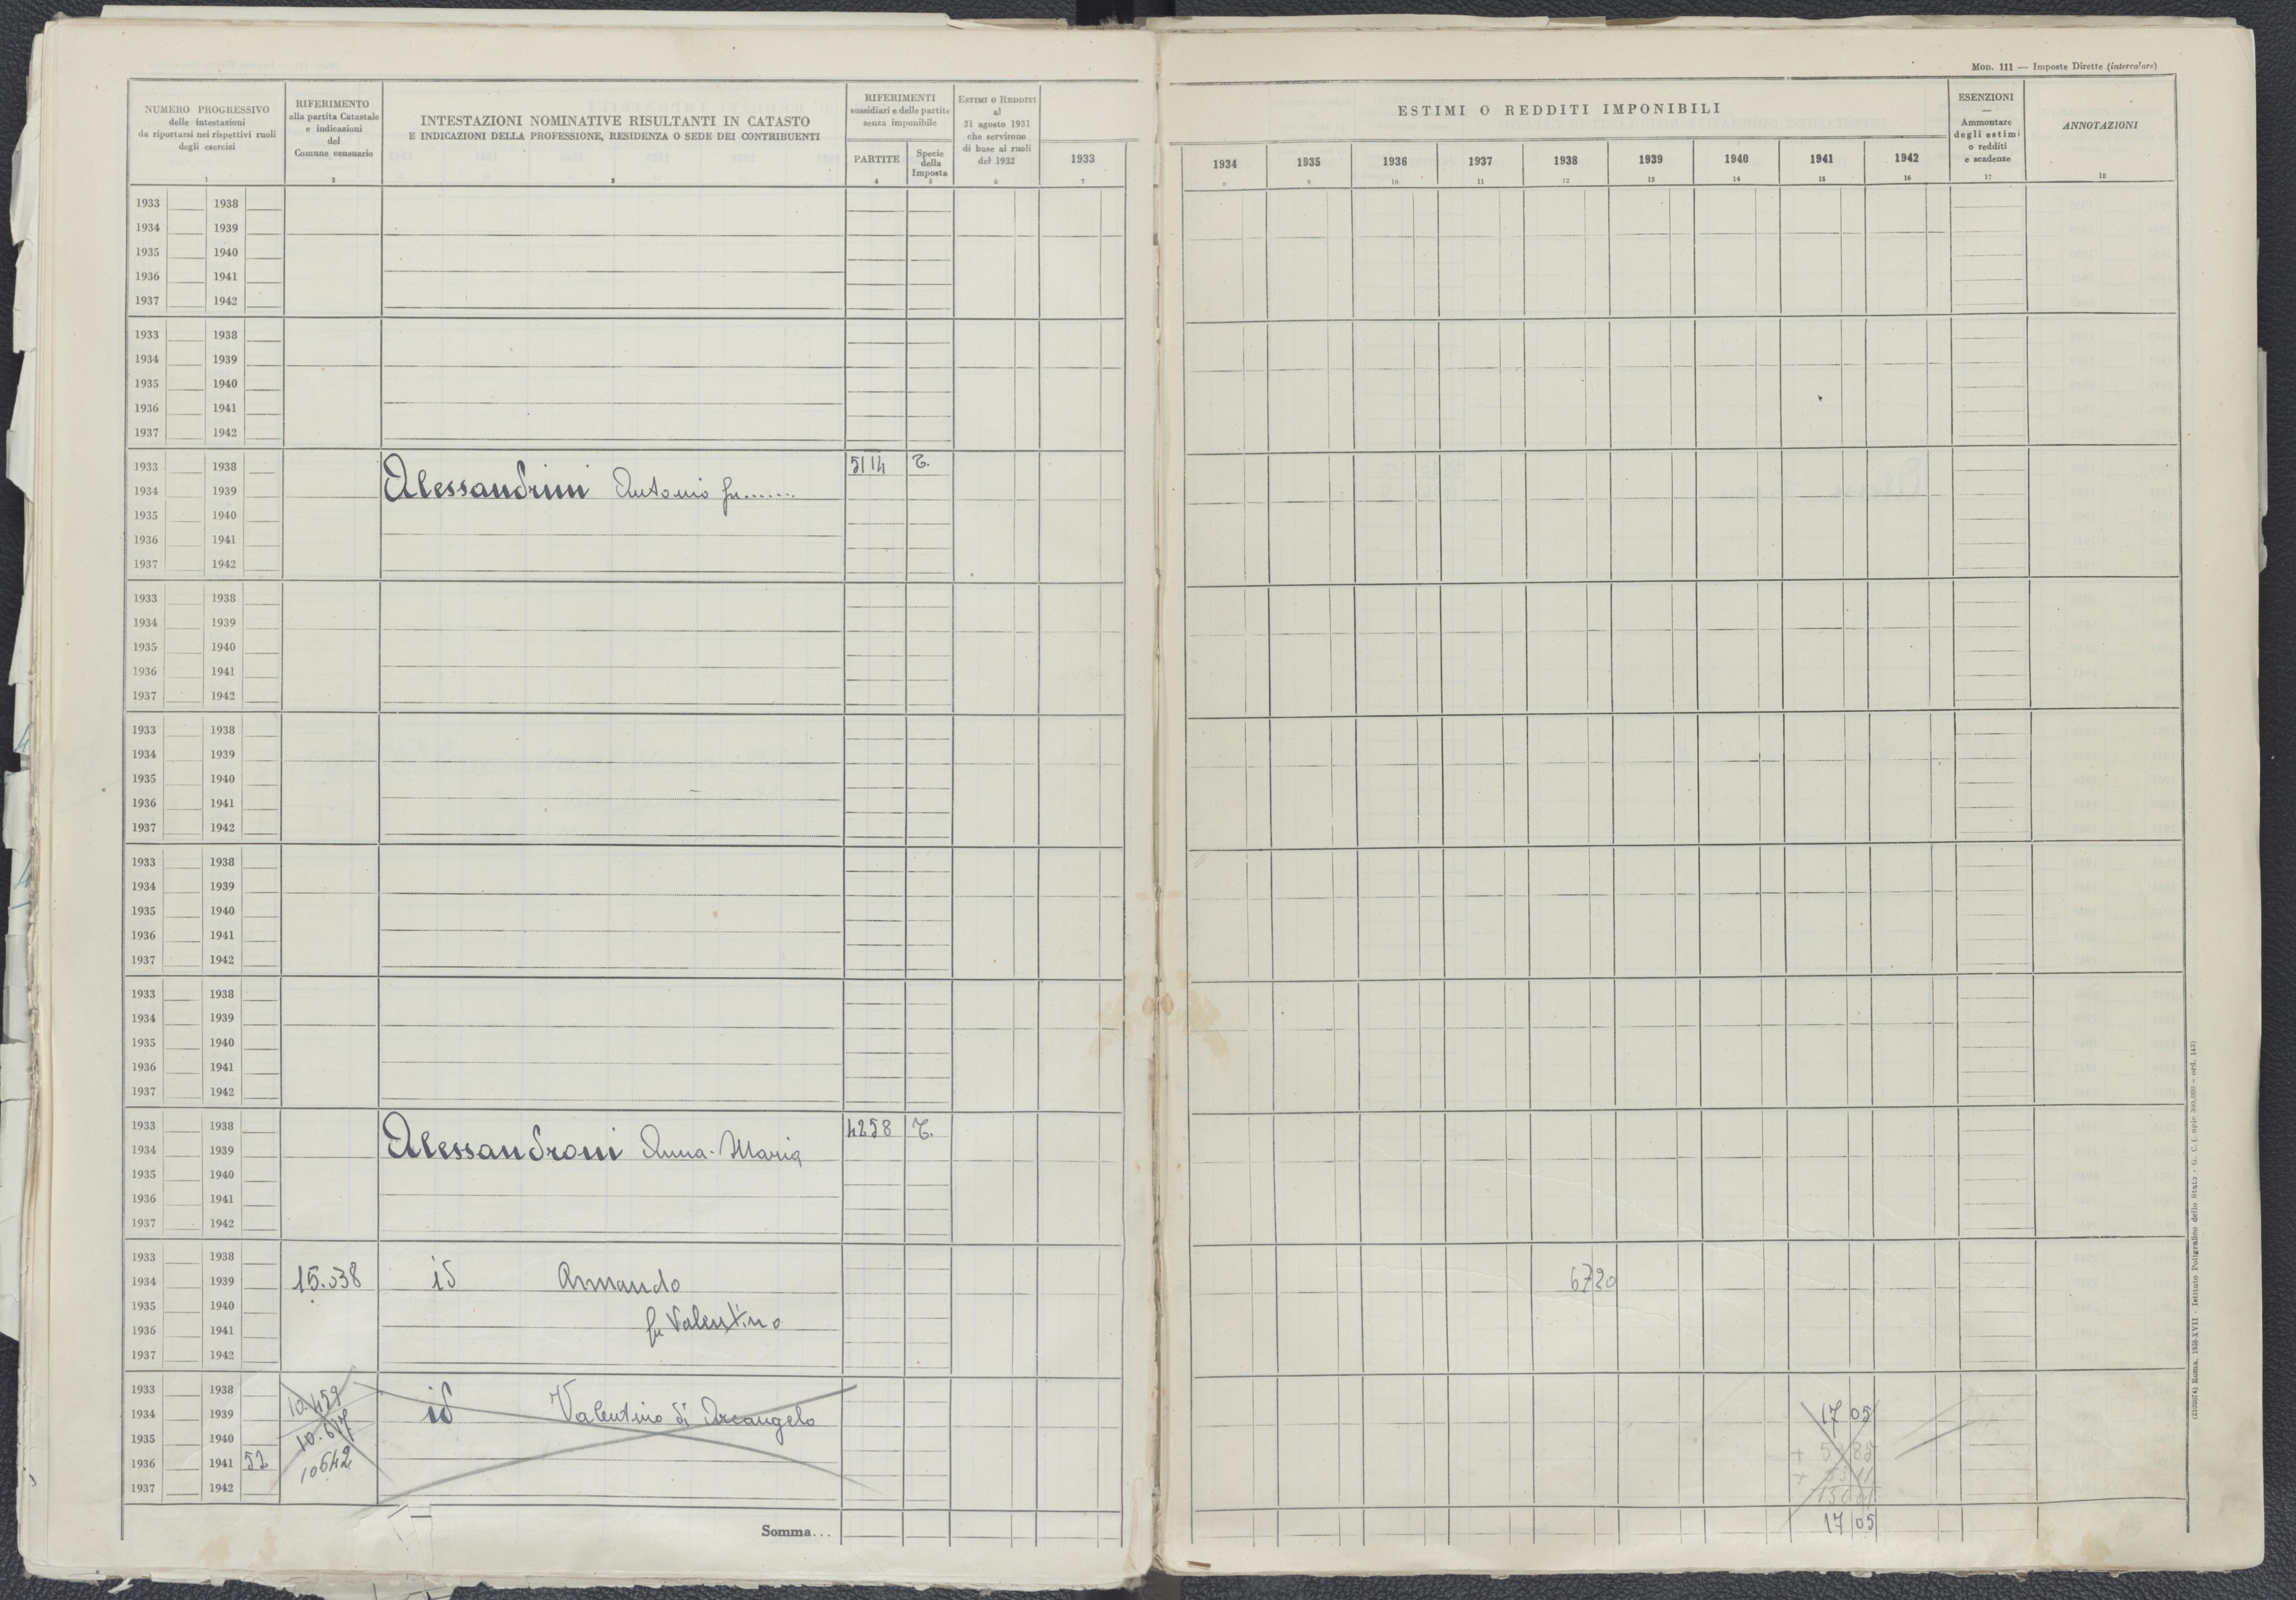 Mod. 111 — Imposte Dirette (intercalare)
NUMERO PROGRESSIVO
delle intestazioni
da riportarsi nei rispettivi ruoli
degli esercizi
1
RIFERIMENTO
alla partita Catastale
e indicazioni
del
Comune censuario
2
INTESTAZIONI NOMINATIVE RISULTANTI IN CATASTO
E INDICAZIONI DELLA PROFESSIONE, RESIDENZA O SEDE DEI CONTRIBUENTI
3
RIFERIMENTI
sussidiari e delle partite
senza imponibile
PARTITE
4
Specie
della
Imposta
5
ESTIMI O REDDITI
al
31 agosto 1931
che servirono
di base ai ruoli
del 1932
6
1933
7
ESTIMI O REDDITI IMPONIBILI
1934 1935 1936 1937 1938 1939 1940 1941 1942
8 9 10 11 12 13 14 15 16
ESENZIONI
—
Ammontare
degli estimi
o redditi
e scadenze
17
ANNOTAZIONI
18
1933 1938
1934 1939
1935 1940
1936 1941
1937 1942
1933 1938
1934 1939
1935 1940
1936 1941
1937 1942
1933 1938 5114 T.
1934 1939 Alessandrini Antonio fu......
1935 1940
1936 1941
1937 1942
1933 1938
1934 1939
1935 1940
1936 1941
1937 1942
1933 1938
1934 1939
1935 1940
1936 1941
1937 1942
1933 1938
1934 1939
1935 1940
1936 1941
1937 1942
1933 1938
1934 1939
1935 1940
1936 1941
1937 1942
1933 1938 4258 T.
1934 1939 Alessandroni Anna-Maria
1935 1940
1936 1941
1937 1942
1933 1938
1934 1939 15.538 id Armando 6720
1935 1940
1936 1941 fu Valentino
1937 1942
1933 1938 10.459
1934 1939 id Valentino di Arcangelo 17 05
1935 1940 10.617
1936 1941 52 10642
1937 1942
Somma... 17 05